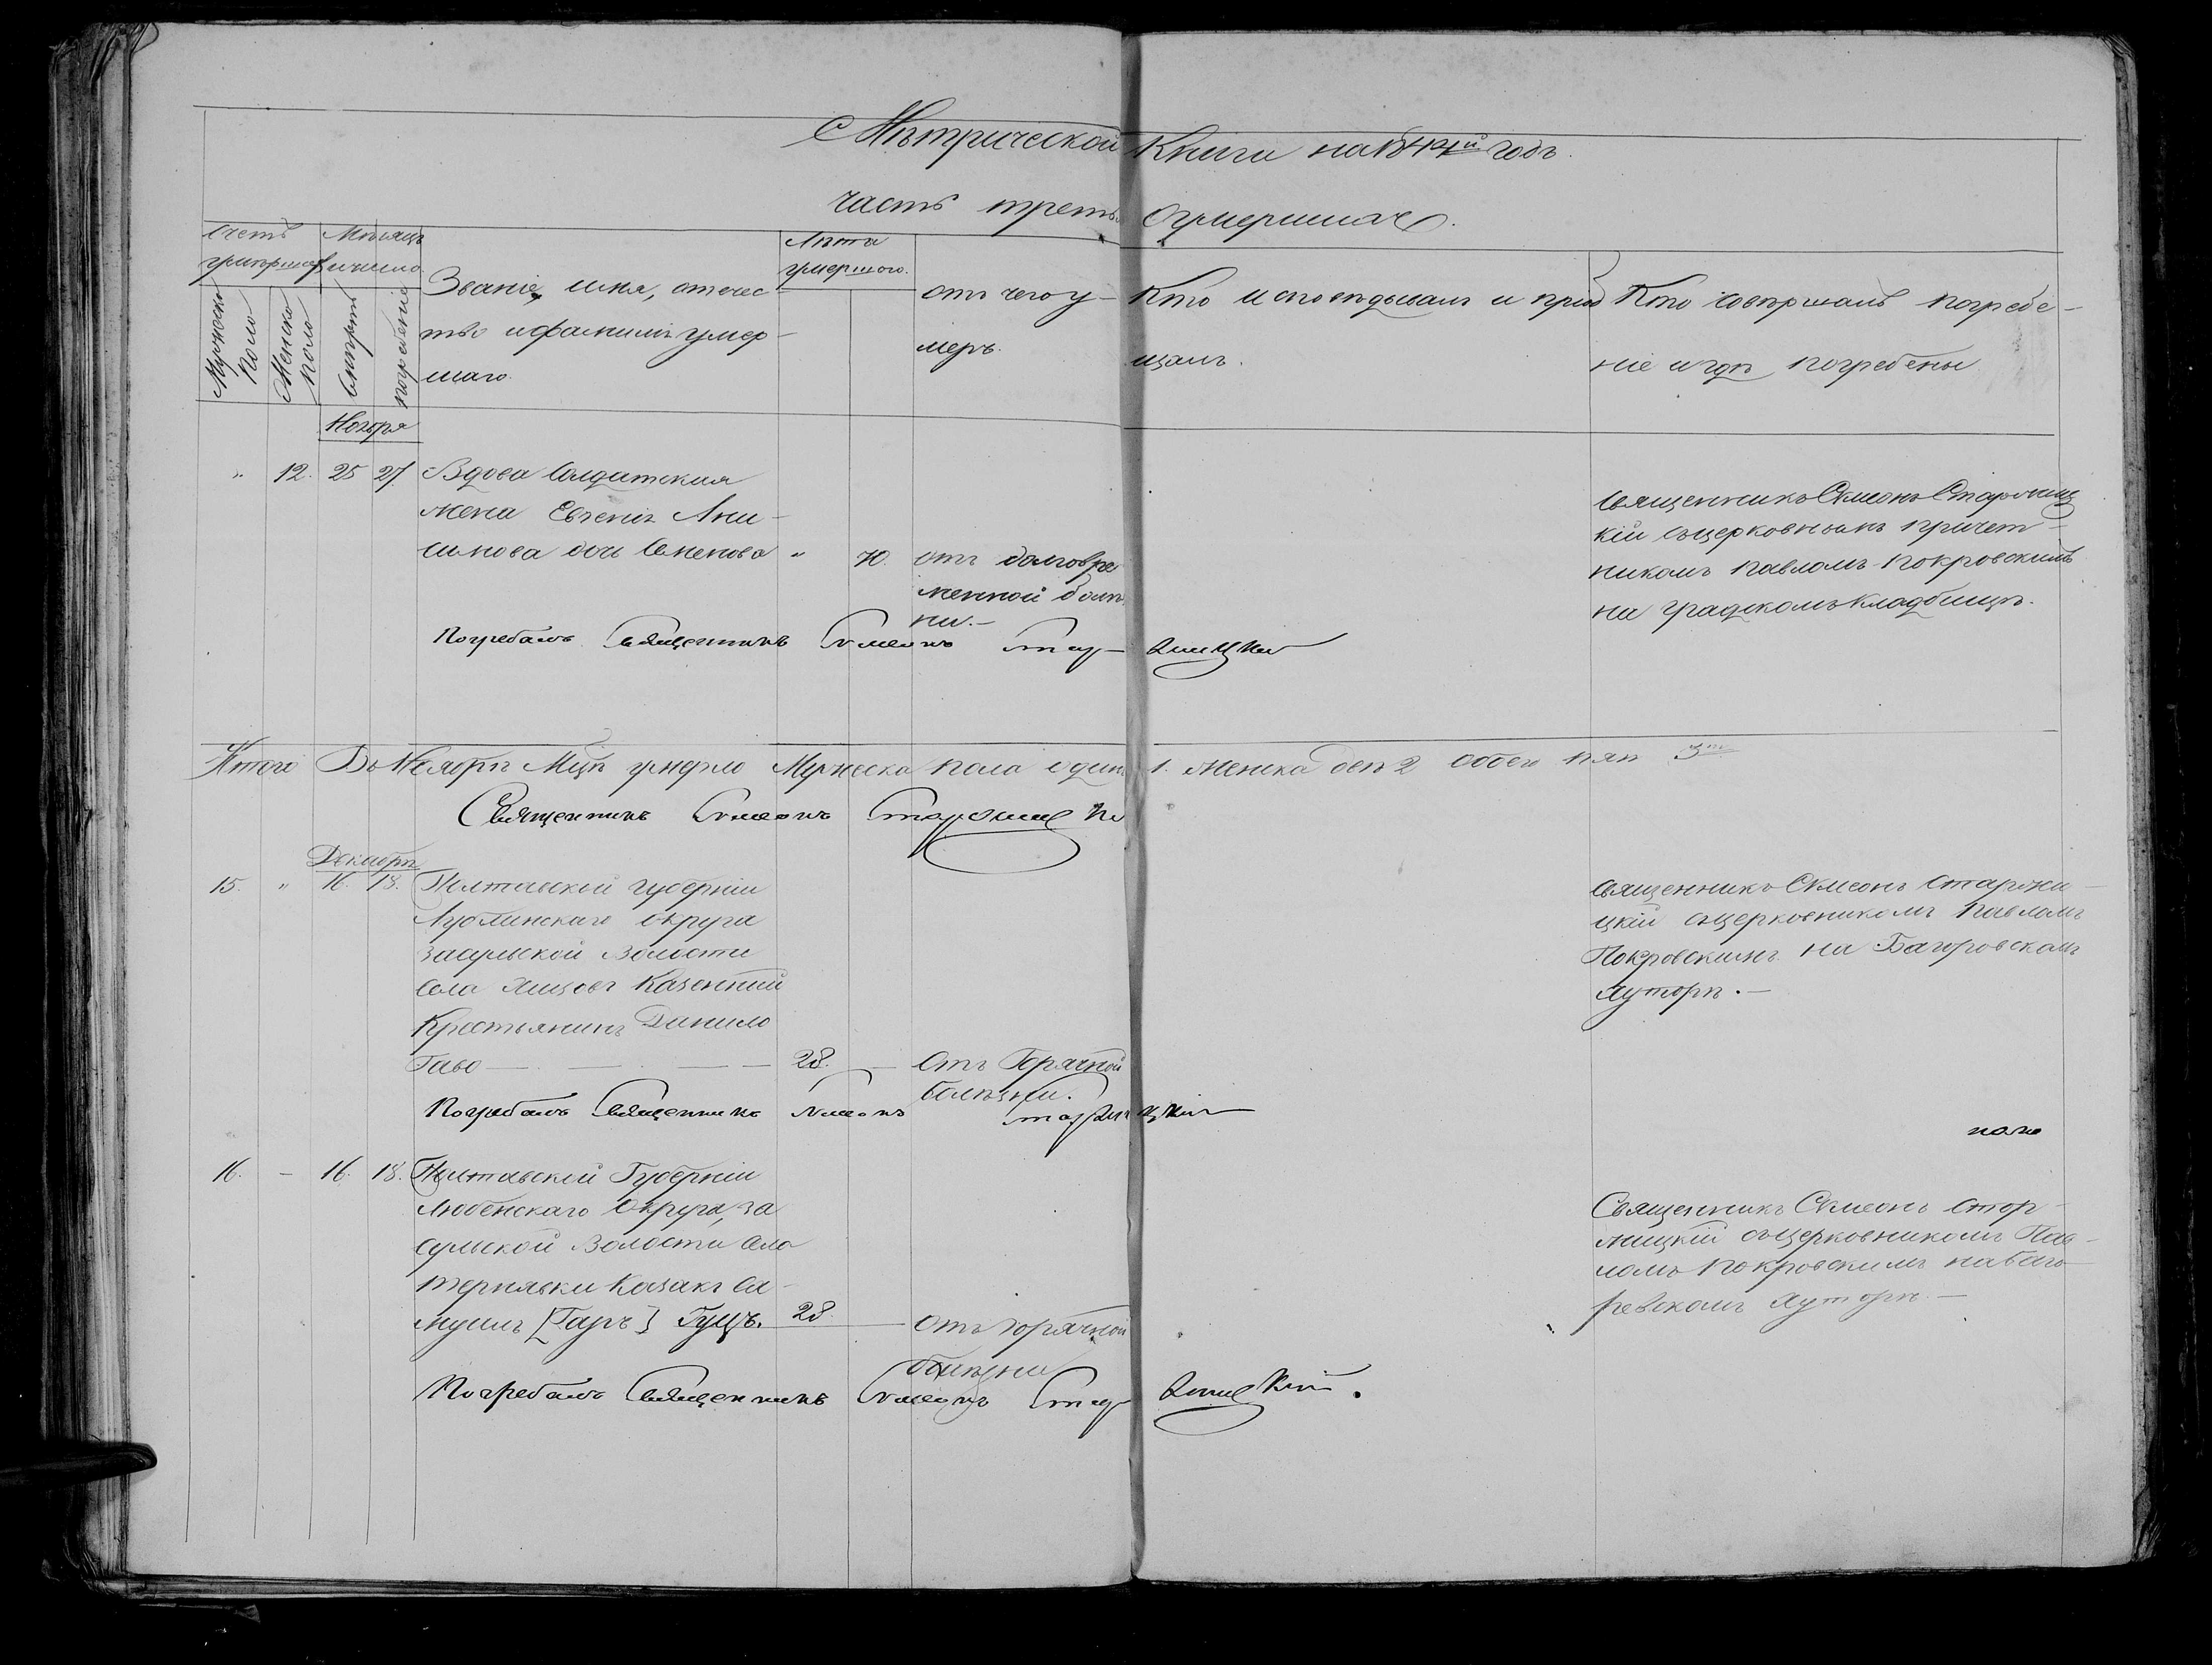 Метрической Книги на годъ.
часть третья о умершихъ.
Счетъ умершихъ
Мужеска пола
Женска пола
Месяцъ и число
Смерти
погребенія
Званіе, имя, отечес-
тво и фамилія умер-
шаго.
Лета умершого.
отъ чего у-
меръ.
Кто исповедывалъ и приоб
щалъ.
Кто совершалъ погребе-
ніе и где погребены
Ноября
" 12. 25 27. Вдова Солдатская
жена Евгенія Ани-
симова дочь Семенова " 70. отъ долговре
менной болез
ни.-
Священникъ Сѵмеонъ Старжиц
кій съ церковнымъ причет-
никомъ Павломъ Покровскимъ
на градскомъ кладбище.
Погребалъ Священникъ Сѵмеонъ Старжицкій
Итого Въ Ноябре Мце умерло Мужеска пола один 1. женска две 2 обоего
Священникъ Сѵмеонъ Старжицкій
Декабрь
15. " 16. 18. Полтавской губерніи
Лублинскаго округа
Засульской Волости
села Казенный
Крестьянинъ Данило
Гаво 28. отъ Горячной
болезни.
Священникъ Сѵмеонъ Старжи
цкій съ церковникомъ Павломъ
Покровскимъ на Багоровскомъ
хуторе.-
Погребалъ Священникъ Сѵмеонъ Старжицкій
16. - 16. 18. Полтавской Губерніи
Любенскаго Округа, за
сульской Волости села
Казакъ Са-
муилъ [Гаръ] Гуцъ. 28 отъ горячной
болезни
Священникъ Сѵмеонъ Стар-
жицкій съ церковникомъ Пав-
ломъ Покровскимъ на Баго-
ревскомъ хуторе.-
Погребалъ Священникъ Сѵмеонъ Старжицкій.